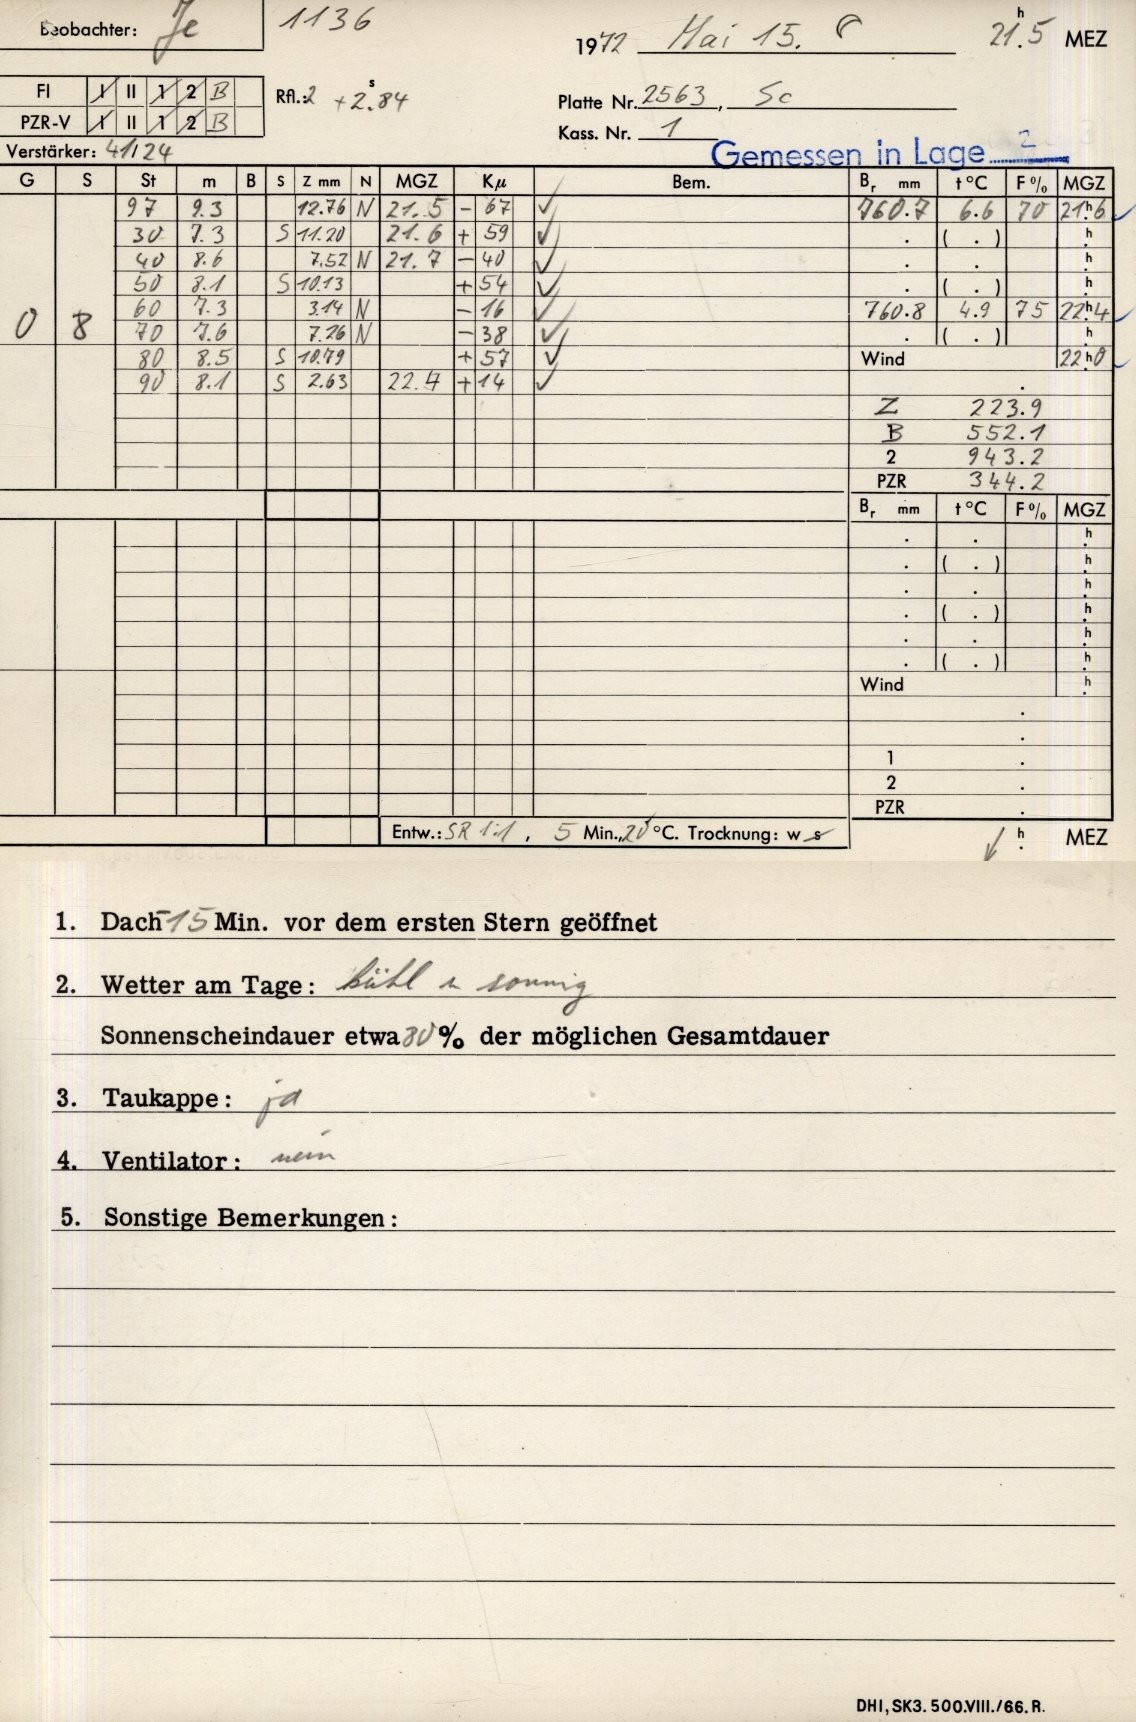 Beobachter: Je 1136
1972 Mai 15. 21.5 h MEZ
FI I II 1 2 B
PZR-V I II 1 2 B
Rfl.: 2 +2.84 s
Platte Nr. 2563, Sc
Kass. Nr. 1
Verstärker: 41/24
Gemessen in Lage 2
G S St m B S Z mm N MGZ Kμ Bem. Br mm t °C F % MGZ
97 9.3 12.76 N 21.5 - 67 ✓ 760.7 6.6 70 21h6
30 7.3 S 11.20 21.6 + 59 ✓ . ( . ) h
40 8.6 7.52 N 21.7 - 40 ✓ . . h
50 8.1 S 10.13 + 54 ✓ . ( . ) h
0 8 60 7.3 3.14 N - 16 ✓ 760.8 4.9 75 22h4
70 7.6 7.26 N - 38 ✓ . ( . ) h
80 8.5 S 10.79 + 57 ✓ Wind 22h0
90 8.1 S 2.63 22.4 + 14 ✓ .
Z 223.9
B 552.1
2 943.2
PZR 344.2
Br mm t °C F % MGZ
. . h
. ( . ) h
. . h
. ( . ) h
. . h
. ( . ) h
Wind h
.
.
1 .
2 .
PZR .
Entw.: SR 1:1, 5 Min., 20 °C. Trocknung: w s h MEZ
1. Dach 15 Min. vor dem ersten Stern geöffnet
2. Wetter am Tage: kühl u sonnig
Sonnenscheindauer etwa 80 % der möglichen Gesamtdauer
3. Taukappe: ja
4. Ventilator: nein
5. Sonstige Bemerkungen:
DHI, SK3. 500.VIII./66. R.